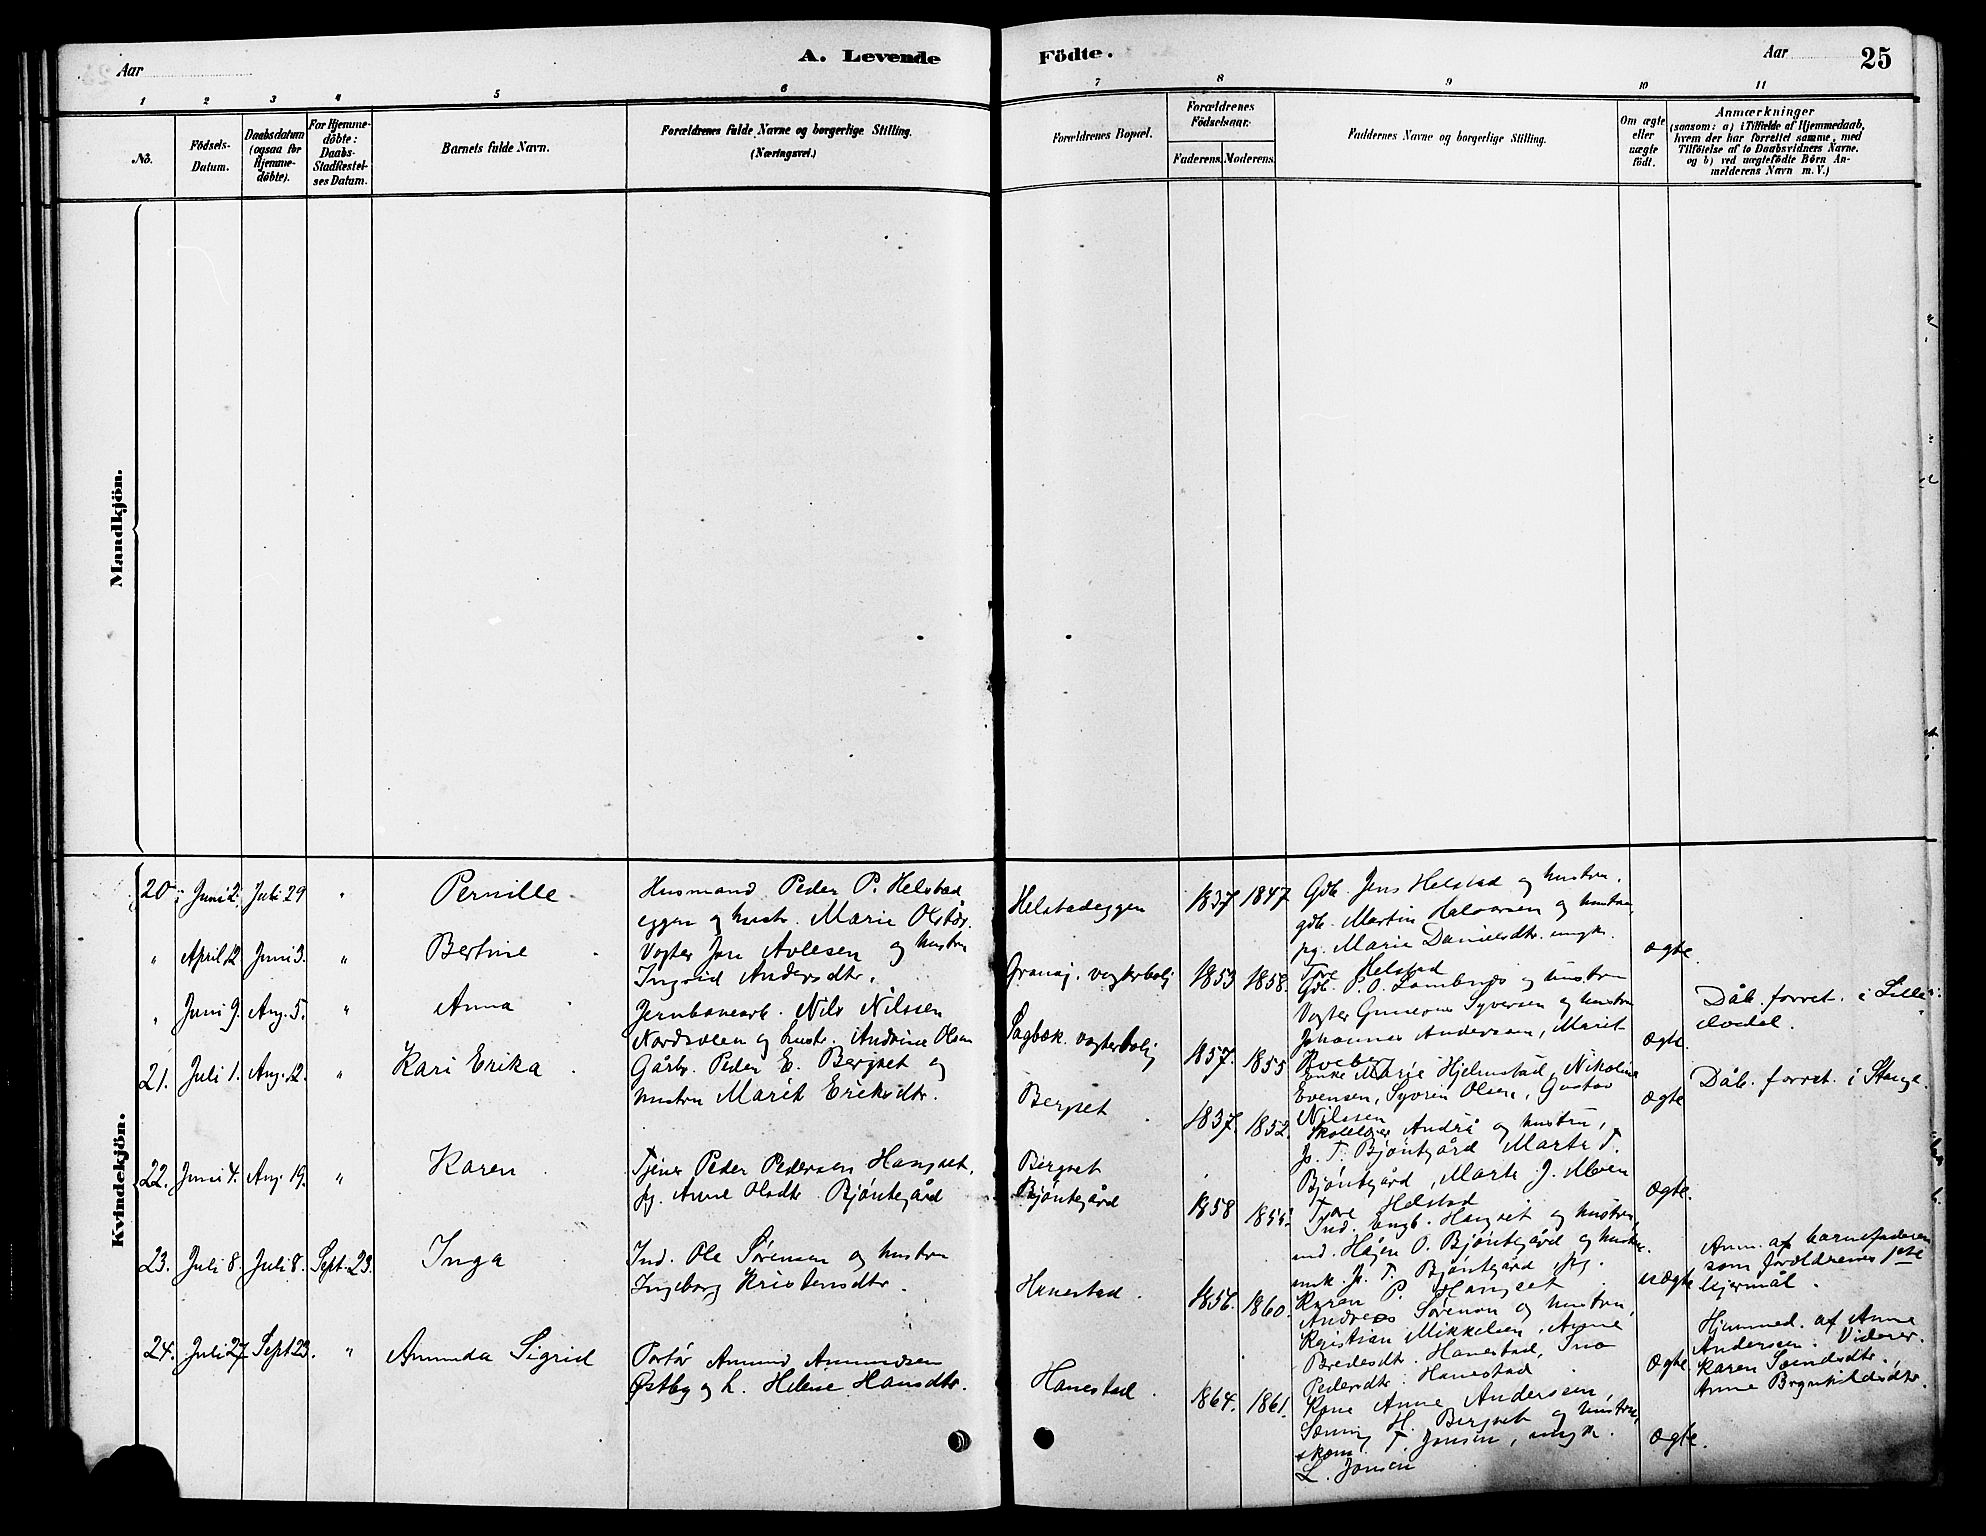 Aar
A. Levende
Födte.
Aar
25
1
2
3
4
5
6
7
8
9
10
11
No.
Födsels-
Datum.
Daabsdatum
(ogsaa for
Hjemme-
döbte).
For Hjemme-
döbte:
Daabs-
Stadfæstel-
ses Datum.
Barnets fulde Navn.
Forældrenes fulde Navne og borgerlige Stilling.
(Næringsvei.)
Forældrenes Bopæl.
Forældrenes
Födselsaar.
Faderens.
Moderens.
Faddernes Navne og borgerlige Stilling.
Om ægte
eller
uægte
født.
Anmærkninger
(saasom: a) i Tilfælde af Hjemmedaab,
hvem der har forrettet samme, med
Tilföielse af to Daabsvidners Navne.
og b) ved uægtefödte Börn An-
melderens Navn m. V.)
Mandkjön.
Kvindekjön.
20. Juni 2. Juli 29 " Pernille
Husmand Peder P. Helstad
eggen og hustr. Marie Olsdtr.
Helstadeggen 1837 1847
Gdb. Jens Helstad og hustru.
gdb. Martin Halvorsen og hustru,
pg. Marie Danielsdtr. ungk.
Tore Helstad
ægte.
" April 12 Juni 3. " Bertine
Vogter Jon Avlesen og hustru
Ingrid Andersdtr.
Granaj. vogterbolig 1853 1858.
Gdb. P. O. Lombnes og hustru
Vogter Gunerius Syversen og hustru
Johannes Andersen, Marit
ægte.
Dåb. forret. i Lille-
elvedal.
" Juni 9. Aug. 5. " Anna
Jernbanearb. Nils Nilssen
Nordsveen og hustr. Andrine Olsen
Sagbæk. vogterbolig 1857. 1855
Enke Marie Hjelmstad, Nikoline
Evensen, Syverin Olsen, Gustav
Nilssen
ægte
Dåb. forret. i Stange.
21. Juli 1. Aug. 12. " Kari Erika
Gårbr. Peder E. Bergset og
hustru Marit Eriksdtr.
Bergset 1837. 1852.
Skolelærer André og hustru,
P. T. Bjöntegård Marte T.
Bjöntegård, Marte J. Moen
Tore Helstad
ægte.
22. Juni 4. Aug. 19. " Karen
Tjener Peder Pedersen Hangset,
pg. Anne Olsdtr. Bjöntegård
Bergset
Bjöntegård 1858
Ind. Engb. Hangset og hustru
ind. Håjen O. Bjöntegård og hustru.
ungk. P. T. Bjöntegård pg.
Karen P. Hangset
uægte
Anm. af barnefaderen
som forældrenes 1ste
lejermål.
23. Juli 8. Juli 8. Sept. 23. Inga
Ind. Ole Sørensen og hustru
Ingeborg Kristensdtr.
Hanestad. 1856. 1860.
Andreas Sørensen og hustru,
Kristian Mikkelsen, Anne
Bredesdtr. Hanestad,
Pedersdtr. Hanestad
ægte
Hjemmed. af Anne
Andersen. Vidner.
Karen
Anne Brynhildsdtr.
24. Juli 27 Sept 23. " Amunda Sigrid
Portør Amund Amundsen
Østby og h. Helene Hansdtr.
Hanestad. 1864. 1861.
Kone Anne Andersen,
H. Bergset og hustru,
T. Jonsen, ungk.
L. Jonsen
ægte.